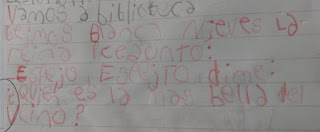 Vamos a biblioteca
Leimos Blanca Nieves La
reina
Espejo, Espejito dime:
¿Quién es la mas bella del
reino?